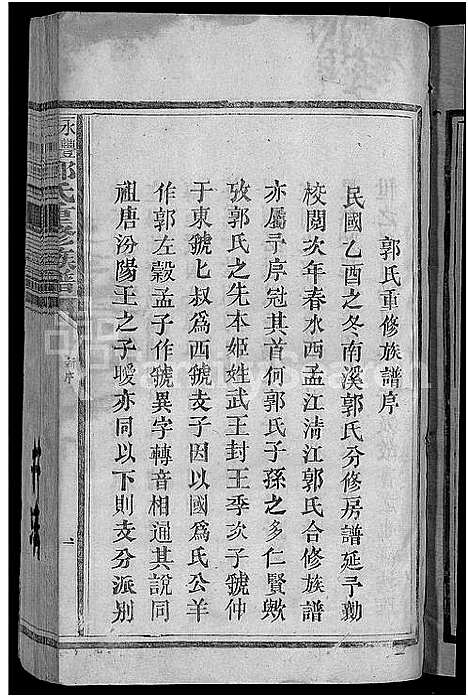 郭氏重修族譜序
民國乙酉之冬南溪郭氏分修房譜延予勷
校閱次年春水西孟江清江郭氏合修族譜
亦屬予序冠其首何郭氏子孫之多仁賢歟
攷郭氏之先本姬姓武王封王季次子虢仲
于東虢匕叔爲西虢支子因以國爲氏公羊
作郭左穀孟子作虢異字轉音相通其說同
祖唐汾陽王之子曖亦同以下則支分派別
永豐郭氏重修族譜
序
一